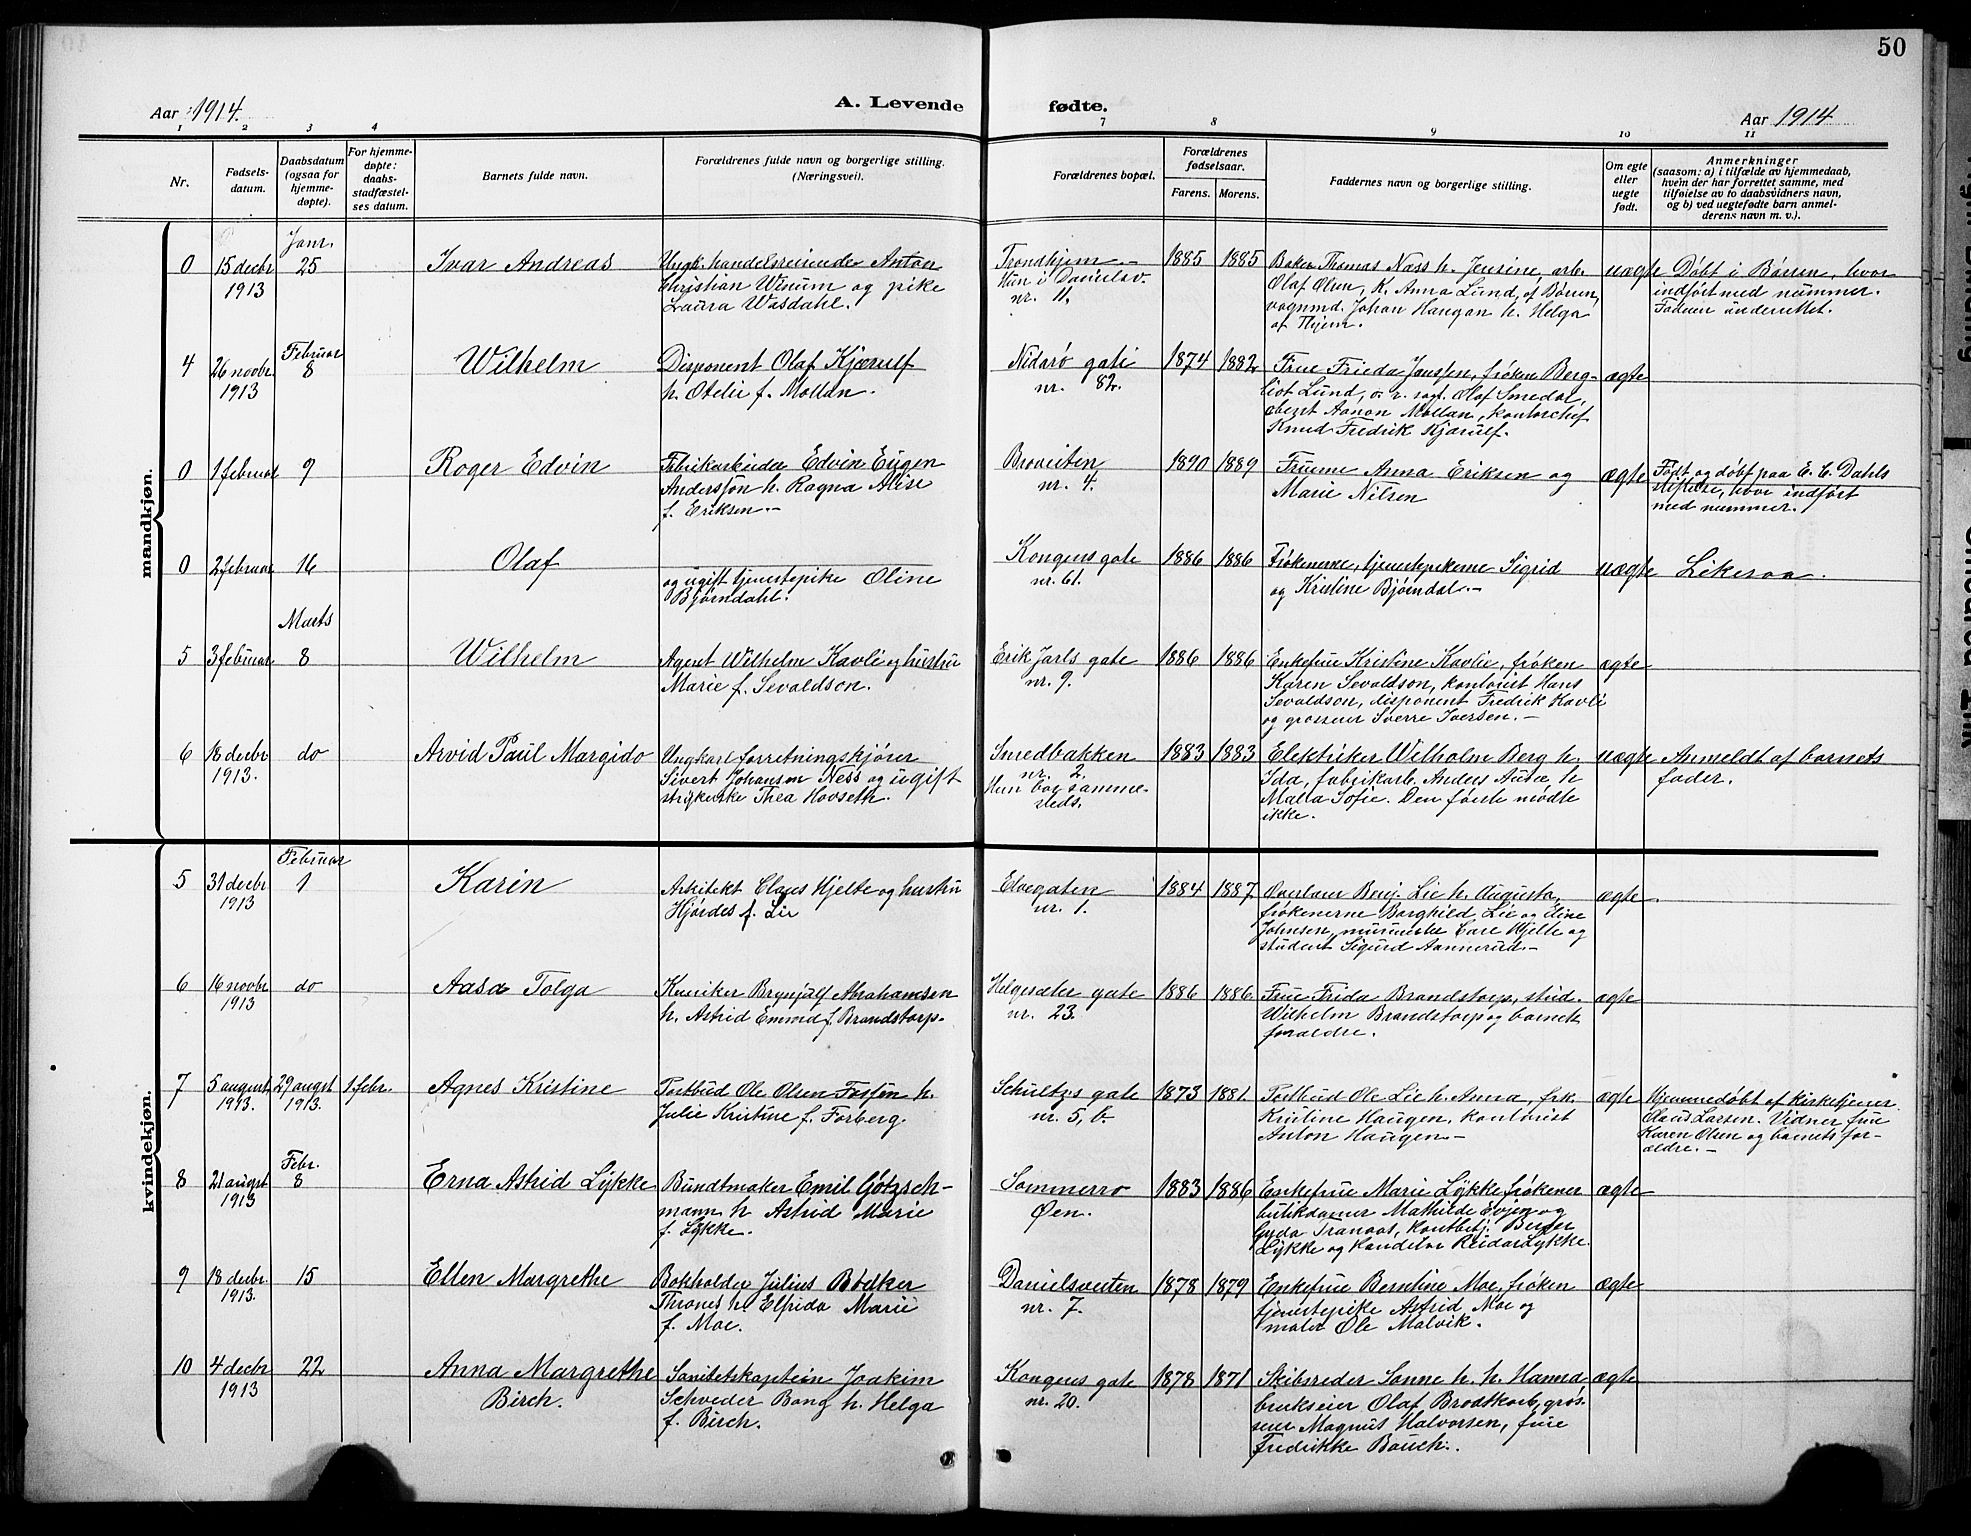 50
Aar 1914.
A. Levende
fødte.
Aar 1914
1 2 3 4
7 8 9 10 11
Nr.
Fødsels-
datum.
Daabsdatum
(ogsaa for
hjemme-
døpte).
For hjemme-
døpte:
daabs-
stadfæstel-
ses datum.
Barnets fulde navn.
Forældrenes fulde navn og borgerlige stilling.
(Næringsvei).
Forældrenes bopæl.
Forældrenes
fødselsaar.
Farens. Morens.
Faddernes navn og borgerlige stilling.
Om egte
eller
uegte
født.
Anmerkninger
(saasom: a) i tilfælde av hjemmedaab,
hvem der har forrettet samme, med
tilføielse av to daabsvidners navn,
og b) ved uegtefødte barn anmel-
derens navn m. v.).
mandkjøn.
Janr.
0 15 decbr 25 Ivar Andreas Ungk. handelsreisende Anton Trondhjem 1885 1885 Baker Thomas Næss h. Jensine, arb. uægte Døbt i Børsen, hvor
1913 Christian Winum og pike Hun i Danielsv. Olaf Olsen, K. Anna Lund, af Børsen, indført med nummer.
Laura Wasdahl. nr. 11. vognmd. Johan Haugan h. Helga Faderen underrettet.
af Thjem.
Februar
4 26 novbr. 8 Wilhelm Disponent Olaf Kjærulf Nidarø gate 1874 1882 Frue Frieda Janssen, frøken Berg- ægte
1913 h. Otelie f. Mollan. nr. 82. liot Lund, o. r. sagf. Olaf Smedal,
oberst Aanon Mollan, kontorchef
Knud Fredrik Kjærulf.
0 1 februar 9 Roger Edvin Fabrikarbeider Edvin Eugen Broveiten 1890 1889 Fruene Anna Eriksen og ægte Født og døbt paa E. C. Dahls
Andersson h. Ragna Alise nr. 4. Marie Nilsen stiftelse, hvor indført
f. Eriksen.- med nummer.
0 2 februar 16 Olaf Kongens gate 1886 1886 Frøkenerne, tjenestepikerne Sigrid uægte Likesaa.
og ugift tjenestepike Oline nr. 61. og Kristine Bjørndal.-
Bjørndahl.
Marts
5 3 februar 8 Wilhelm Agent Wilhelm Kavli og hustru Erik Jarls gate 1886 1886 Enkefrue Kristine Kavlie, frøken ægte
Marie f. Sevaldson. nr. 9. Karen Sevaldson, kontorist Hans
Sevaldson, disponent Fredrik Kavli
og grosserer Sverre Iversen.-
6 18 decbr do Arvid Paul Margido Ungkarl forretningskjører Smedbakken 1883 1883 Elektriker Wilholm Berg h. uægte Anmeldt af barnets
1913. Sivert Johansen Ness og ugift nr. 2. Ida, fabrikarb. Anders Aune h. fader.
strykerske Thea Hovseth. Hun bor samme- Malla Sofie. Den første mødte
steds. ikke.
kvindekjøn.
Februar
5 31 decbr 1 Karin Arkitekt Claus Hjelte og hustru Elvegaten 1884 1887. Overlærer Benj. Lie h. Augusta, ægte.
1913 Hjørdes f. Lie nr. 1. frøkenerne Borghild Lie og Eline
Johnsen, murmester Care Hjelte og
student Sigurd Aannerud.-
6 16 novbr do Aasa Tolga Kemiker Brynjulf Abrahamsen Helgesæter gate 1886 1886 Frue Frida Brandstorp, stud. ægte
1913 h. Astrid Emmed f. Brandstorp. nr. 23. Wilhelm Brandstorp og barnets
forældre.
7 5 august 29 augst 1 febr. Agnes Kristine Postbud Ole Olsen Fossen h. Schultz's gate 1873 1881 Postbud Ole Lie h. Anna, frk. ægte Hjemmedøbt af kirketjener
1913. 1913. Julie Kristine f. Forberg. nr. 5, b. Kristine Haugen, kontorist Claus Larsen. Vidner frue
Anton Haugen.- Karen Olsen og barnets for-
ældre.-
Febr.
8 21 augst 8 Erna Astrid Lykke Bundtmaker Emil Götzsch- Sommerro 1883 1886 Enkefrue Marie Lykke frøkener ægte
1913 mann h. Astrid Marie Øen. butikdamer Mathilde Evjen og
f. Lykke. Gyda Tranaas, kontbetj. Berger
Lykke og Handelsr Reidar Lykke.
9 18 decbr. 15 Ellen Margrethe Bokholder Julius Bødker Danielsveiten 1878 1879 Enkefrue Berntine Moe, frøken ægte
1913. Thrones h. Elfrida Marie nr. 7. tjenestepike Astrid Moe og
f. Moe. maler Ole Malvik.
10 4 decbr 22 Anna Margrethe Sanitetskaptein Joakim Kongens gate 1878 1871 Skibsreder Sonne h. h. Hanna ægte
1913 Birch. Schveder Bang h. Helga nr. 20. brukseier Olaf Brodtkorb, gros-
f. Birch. serer Magnus Halvorsen, frue
Fredrikke Bauck.